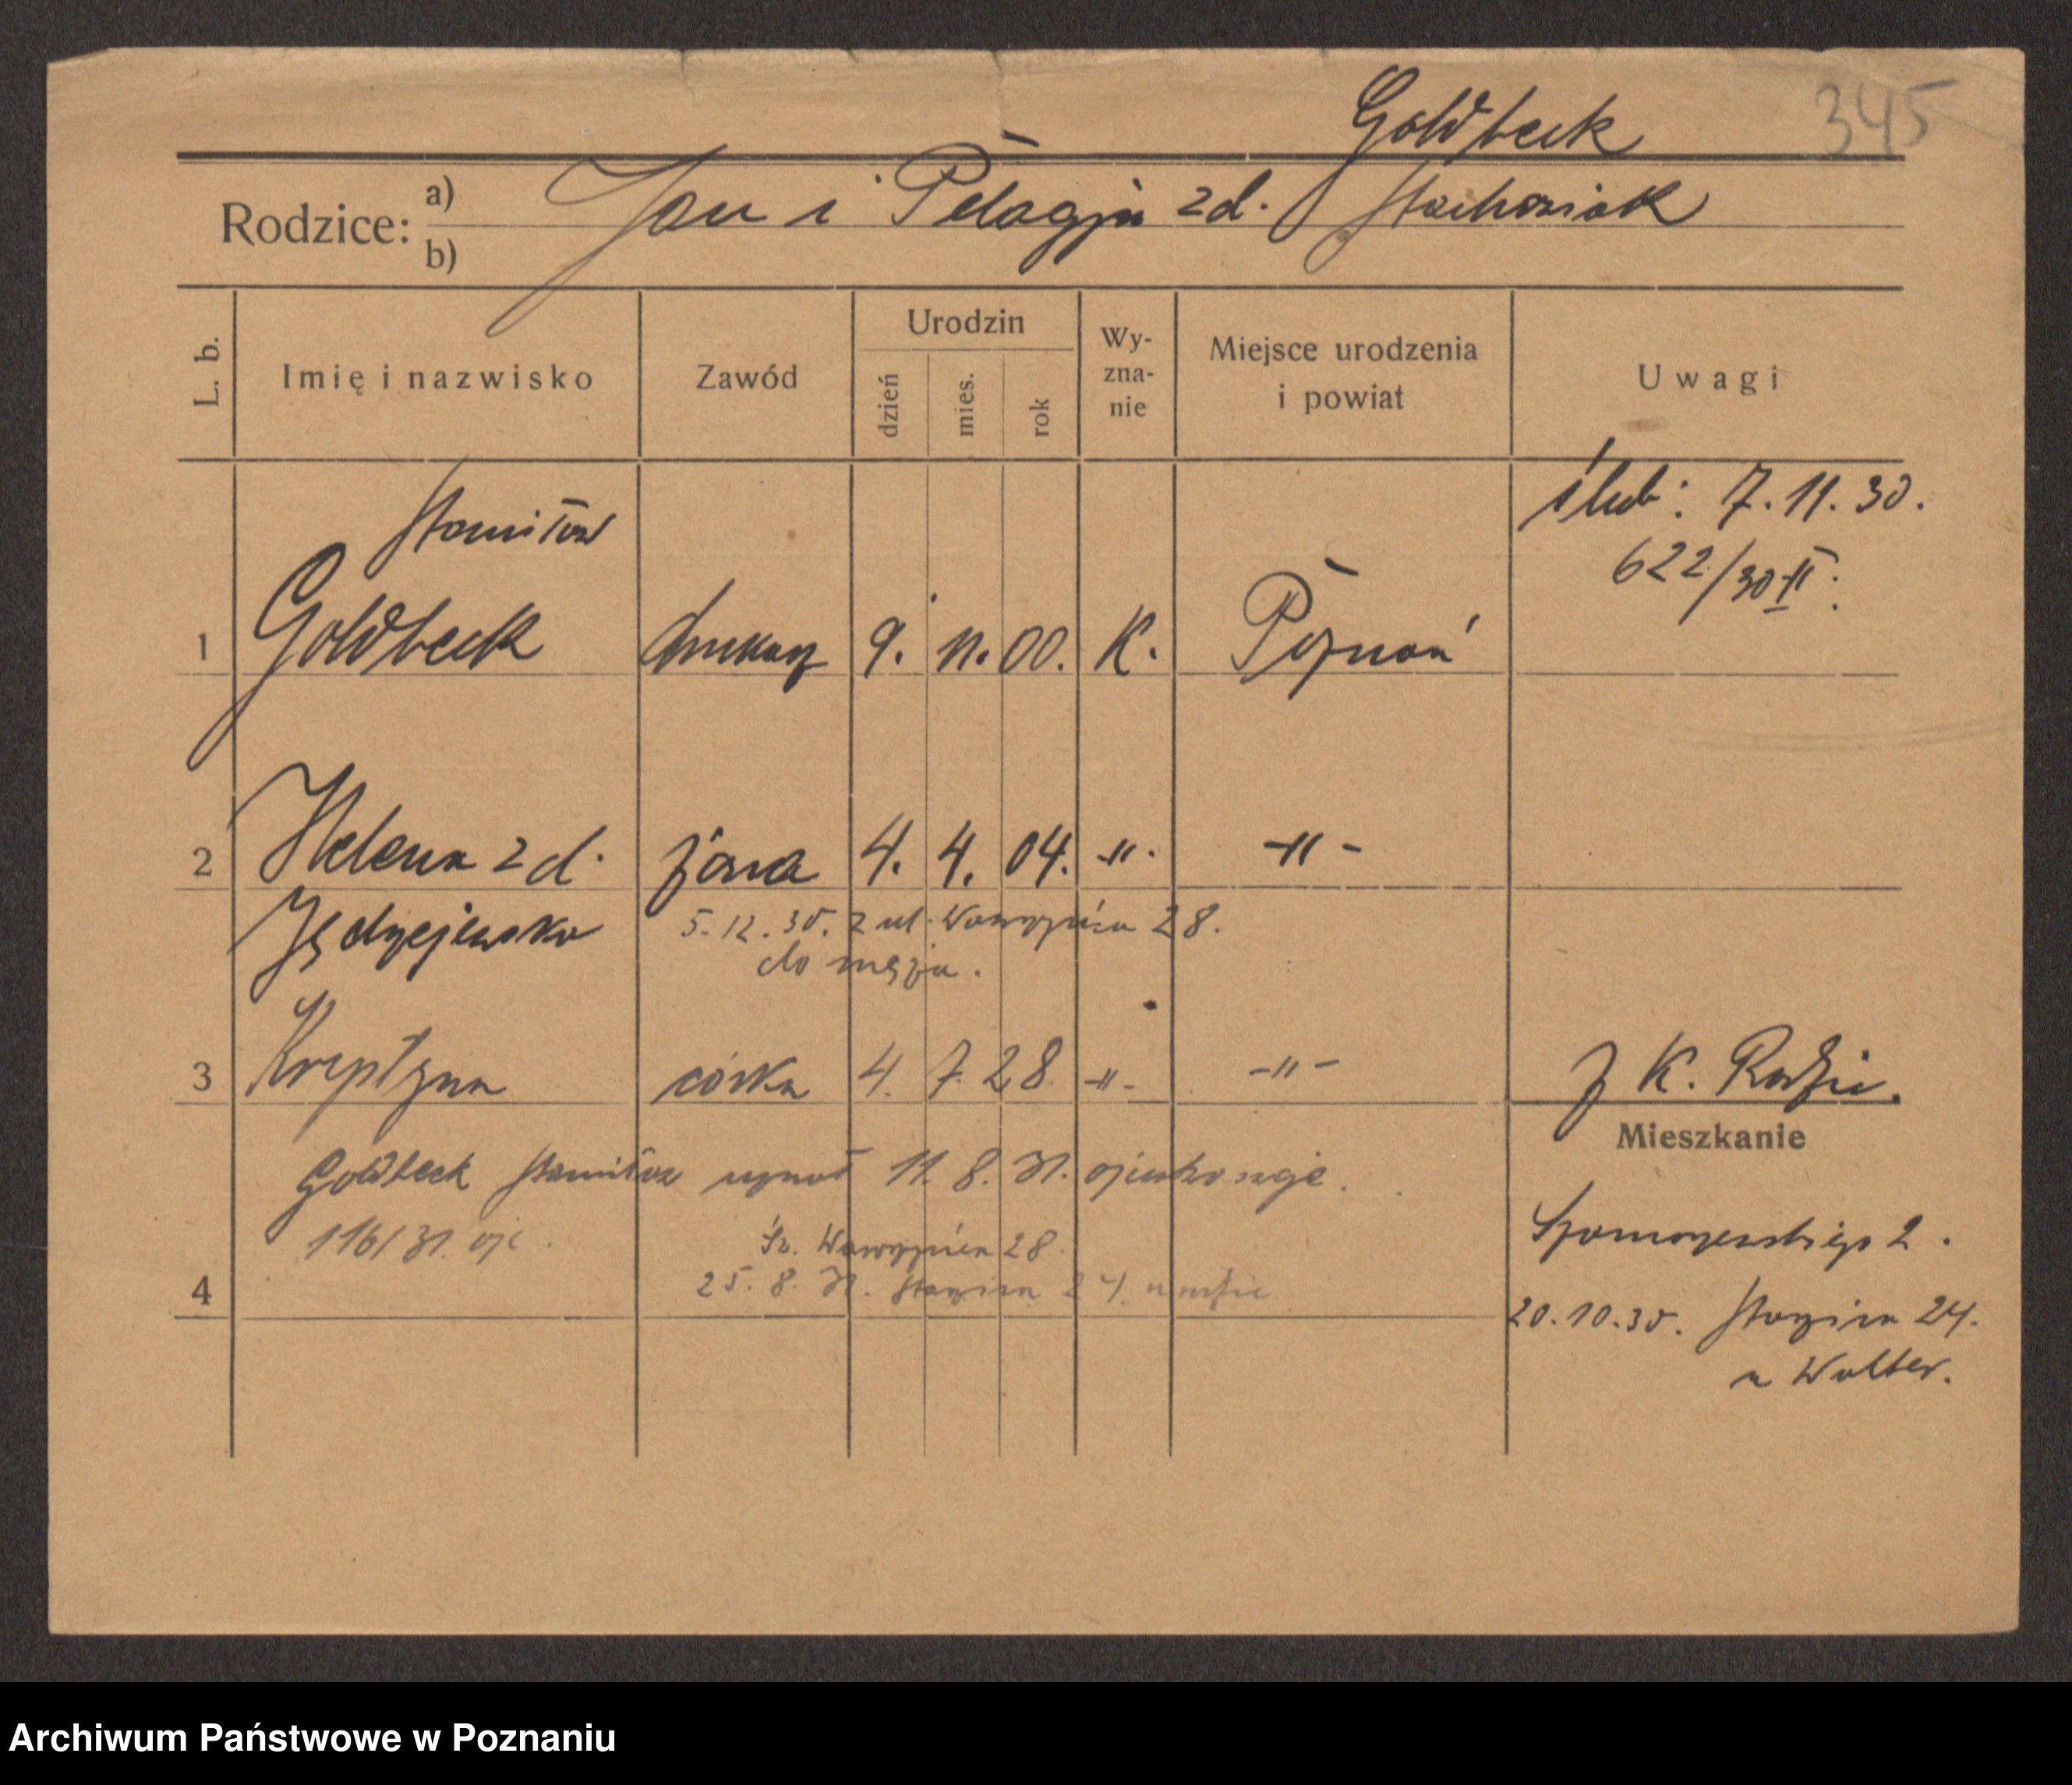 Goldbeck 345
Rodzice: a) b) Jan i Pelagja zd. Stachowiak
L. b. Imię i nazwisko Zawód Urodzin dzień mies. rok Wy-zna-nie Miejsce urodzenia i powiat Uwagi
ślub: 7.11.30.
622/30 II.
Stanisław
1 Goldbeck drukarz 9. 11. 00. K. Poznań
2 Helena zd. żona 4. 4. 04. -"- -"-
Jędrzejewska 5.12.30. z ul. Wawrzyńca 28.
do męża.
3 Krystyna córka 4. 7. 28. -"- -"- K.
Mieszkanie
Goldbeck Stanisław uznał 11. 8. 31. ojcostwo
116/31.
Św. Wawrzyńca 28.
4 25. 8. 31. 24.
2.
20.10.30. 24.
u Walter.
Archiwum Państwowe w Poznaniu